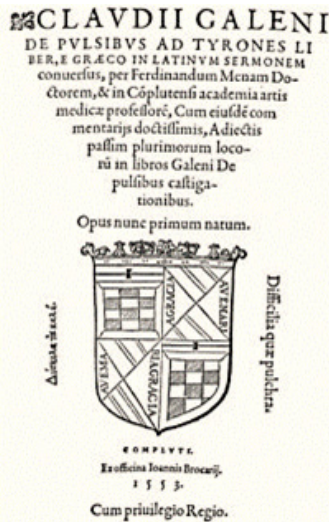 CLAVDII GALENI
DE PVLSIBVS AD TYRONES LI
BER, E GRÆCO IN LATINVM SERMONEM
conuersus, per Ferdinandum Menam Do-
ctorem, & in Cōplutensi academia artis
medicæ professorē, Cum eiusdē com
mentarijs doctissimis, Adiectis
passim plurimorum loco-
rū in libros Galeni De
pulsibus castiga-
tionibus.
Opus nunc primum natum.
Difficilia quæ pulchra.
AVEMA
RIAGRACIA
COMPLVTI.
Ex officina Ioannis Brocarij.
1553.
Cum priuilegio Regio.